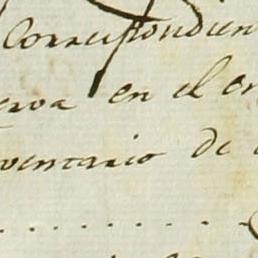 Correspondien
erva en el en
nventario de